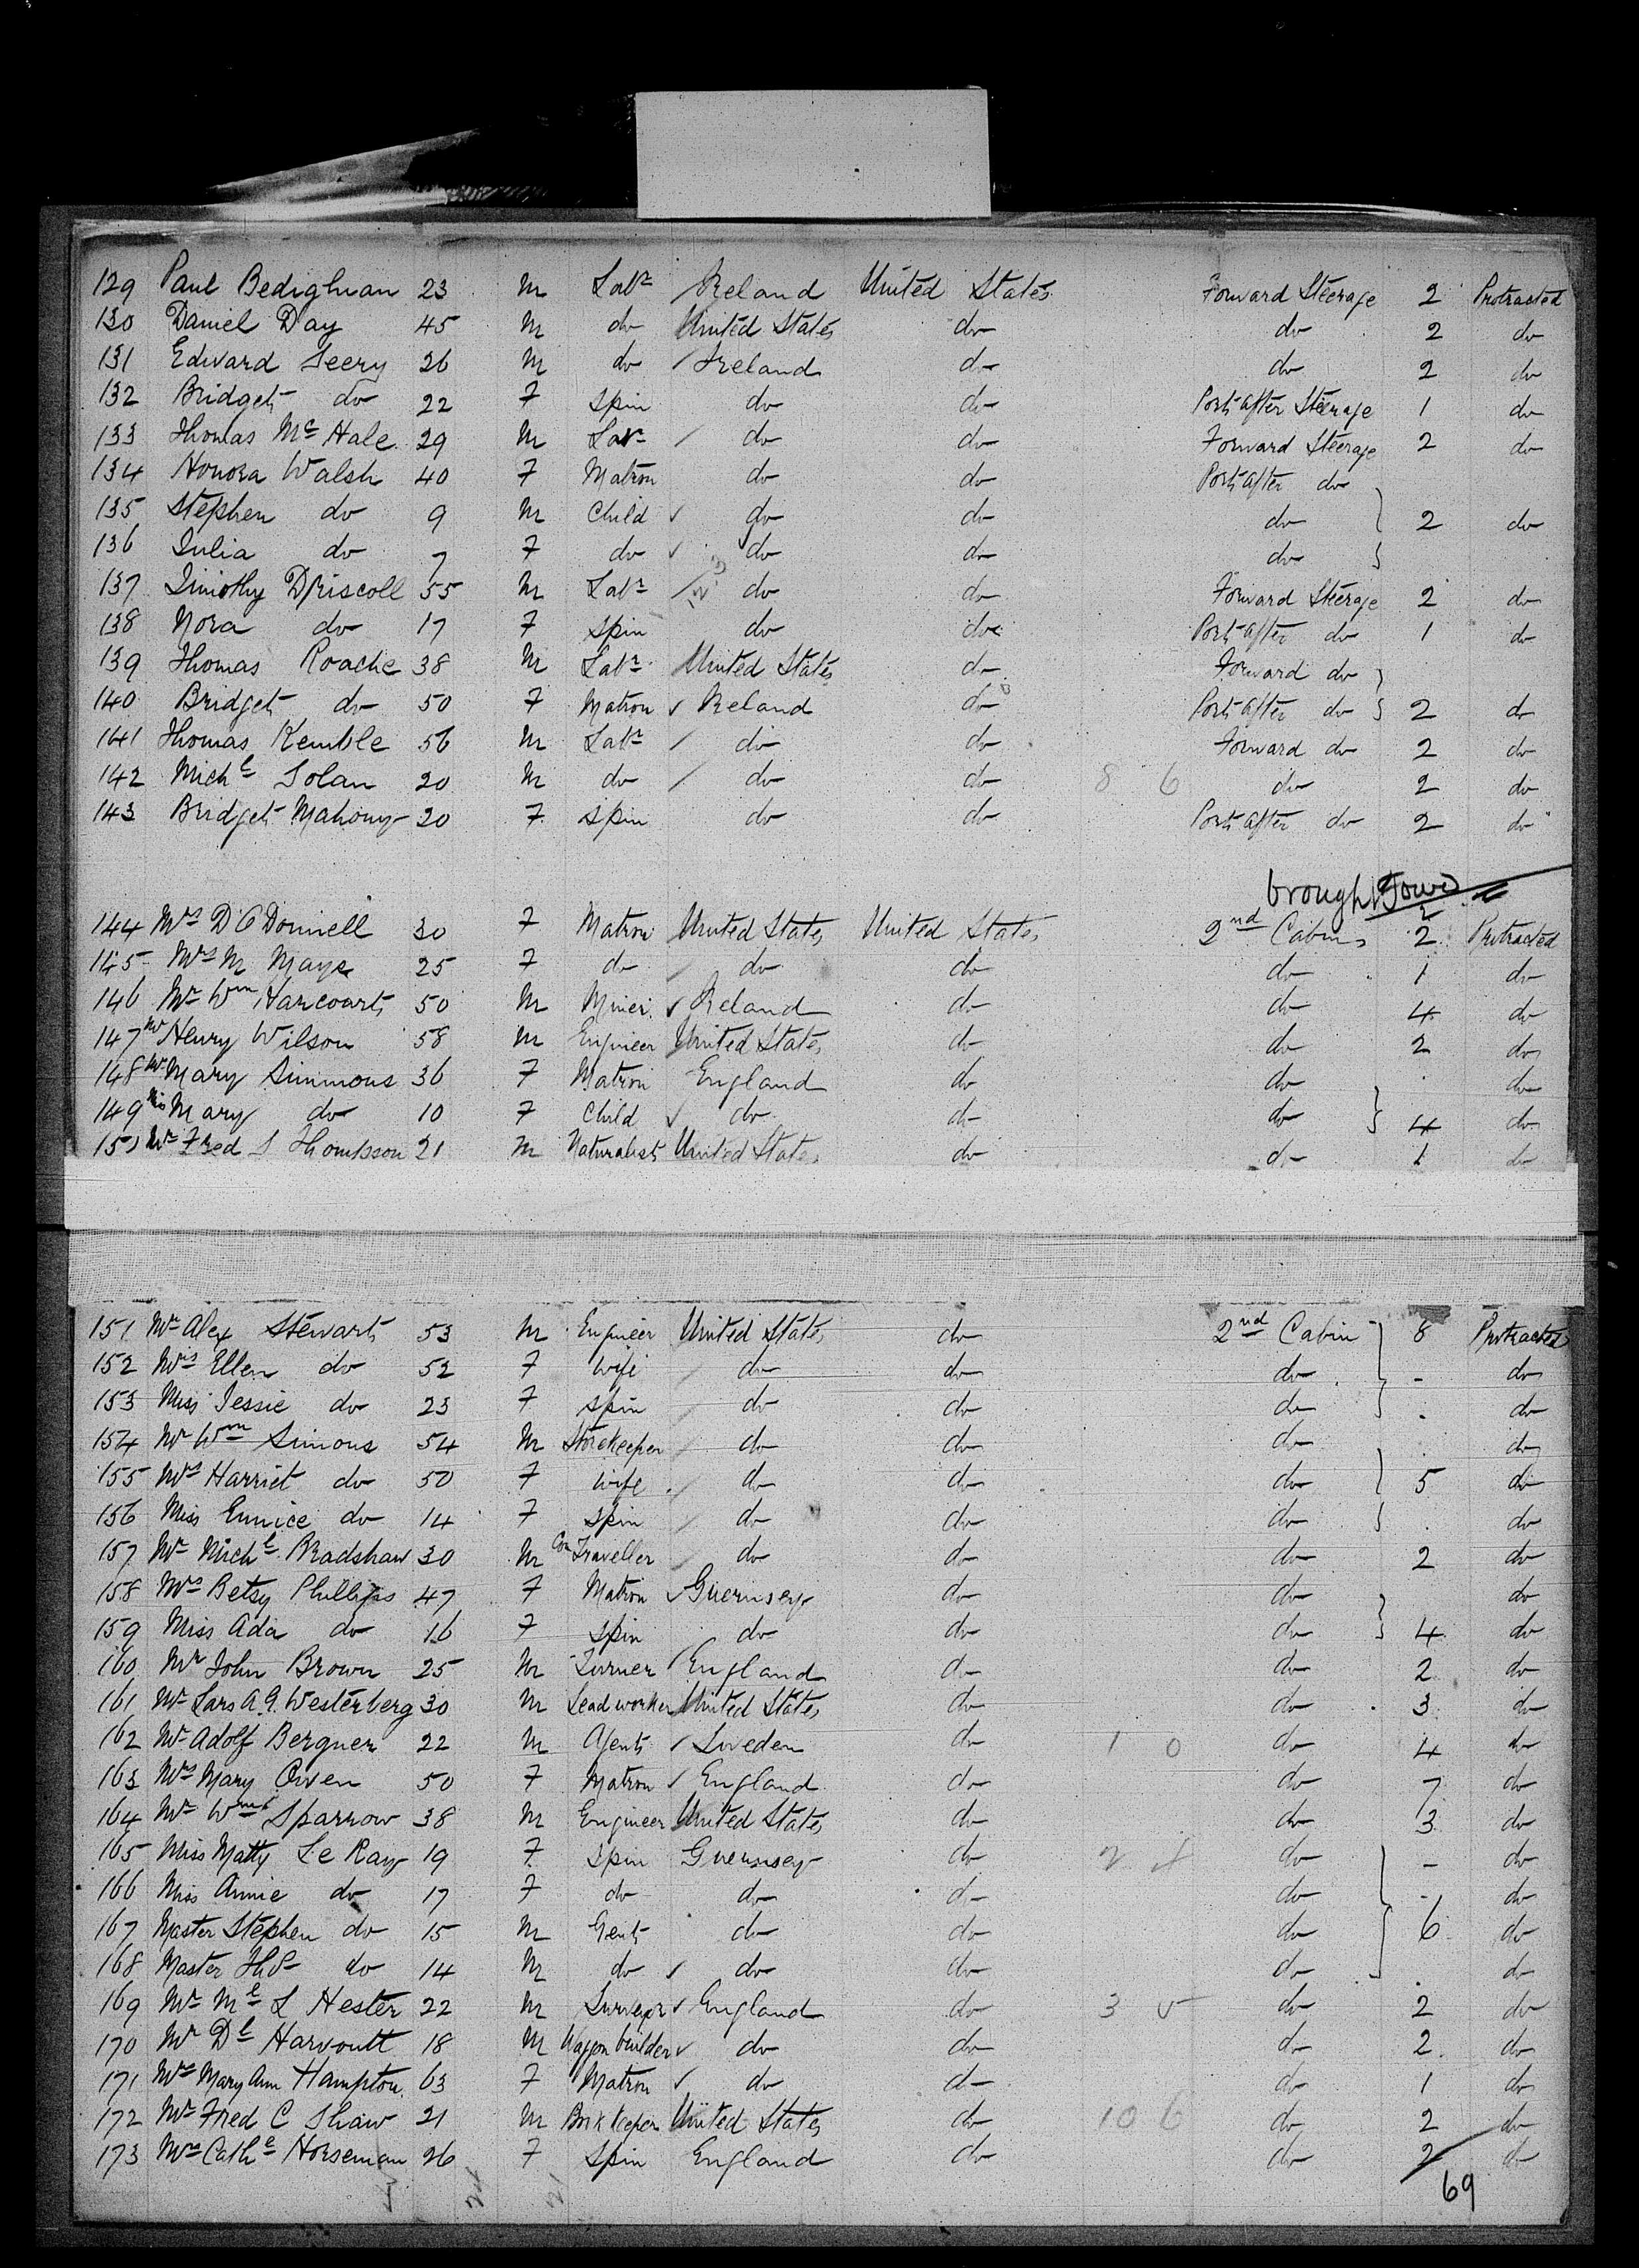 129 Paul Bedighian 23 M Labr Ireland United States Forward Steerage 2 Protracted
130 Daniel Day 45 M do United States do do 2 do
131 Edward Seery 26 M do Ireland do do 2 do
132 Bridget do 22 F Spin do do Port after Steerage 1 do
133 Thomas Mc Hale 29 M Labr do do Forward Steerage 2 do
134 Honora Walsh 40 F Matron do do Port after do
135 Stephen do 9 M Child do do do 2 do
136 Julia do 7 F do do do do
137 Timothy Driscoll 55 M Labr do do Forward Steerage 2 do
138 Nora do 17 F Spin do do Port after do 1 do
139 Thomas Roache 38 M Labr United States do Forward do
140 Bridget do 50 F Matron Ireland do Port after do 2 do
141 Thomas Kemble 56 M Labr do do Forward do 2 do
142 Michl Solan 20 M do do do 8 6 do 2 do
143 Bridget Mahony 20 F Spin do do Port after do 2 do
brought Forwd 2
144 Mrs D O Donnell 30 F Matron United States United States 2nd Cabin 2 Protracted
145 Mrs M Mays 25 F do do do do 1 do
146 Mr Wm Harcourt 50 M Miner Ireland do do 4 do
147 Mr Henry Wilson 58 M Engineer United States do do 2 do
148 Mrs Mary Simmons 36 F Matron England do do do
149 Mis Mary do 10 F Child do do do 4 do
150 Mr Fred S Thompson 21 M Naturalist United States do do 1 do
151 Mr Alex Stewart 53 M Engineer United States do 2nd Cabin 8 Protracted
152 Mrs Ellen do 52 F Wife do do do - do
153 Miss Jessie do 23 F Spin do do do . do
154 Mr Wm Simons 54 M Storekeeper do do do . do
155 Mrs Harriet do 50 F Wife do do do 5 do
156 Miss Eunice do 14 F Spin do do do . do
157 Mr Michl Bradshaw 30 M Com Traveller do do do 2 do
158 Mrs Betsy Phillips 47 F Matron Guernsey do do do
159 Miss Ada do 16 F Spin do do do 4 do
160 Mr John Brown 25 M Turner England do do 2 do
161 Mr Lars A. G. Westerberg 30 M Lead worker United States do do 3 do
162 Mr Adolf Bergner 22 M Agent Sweden do 1 0 do 4 do
163 Mrs Mary Owen 50 F Matron England do do 7 do
164 Mr Wm Sparrow 38 M Engineer United States do do 3 do
165 Miss Matty Le Ray 19 F Spin Guernsey do 2 4 do - do
166 Miss Annie do 17 F do do do do - do
167 Master Stephen do 15 M Gent do do do 6 do
168 Master Thos do 14 M do do do do . do
169 Mr Ml L Hester 22 M Surveyor England do 3 5 do 2 do
170 Mr Dl Harvoutt 18 M Waggon builder do do do 2 do
171 Mrs Mary Ann Hampton 63 F Matron do do do 1 do
172 Mr Fred C Shaw 21 M Book keeper United States do 10 6 do 2 do
173 Mrs Cathe Horseman 26 F Spin England do do 2 do
69